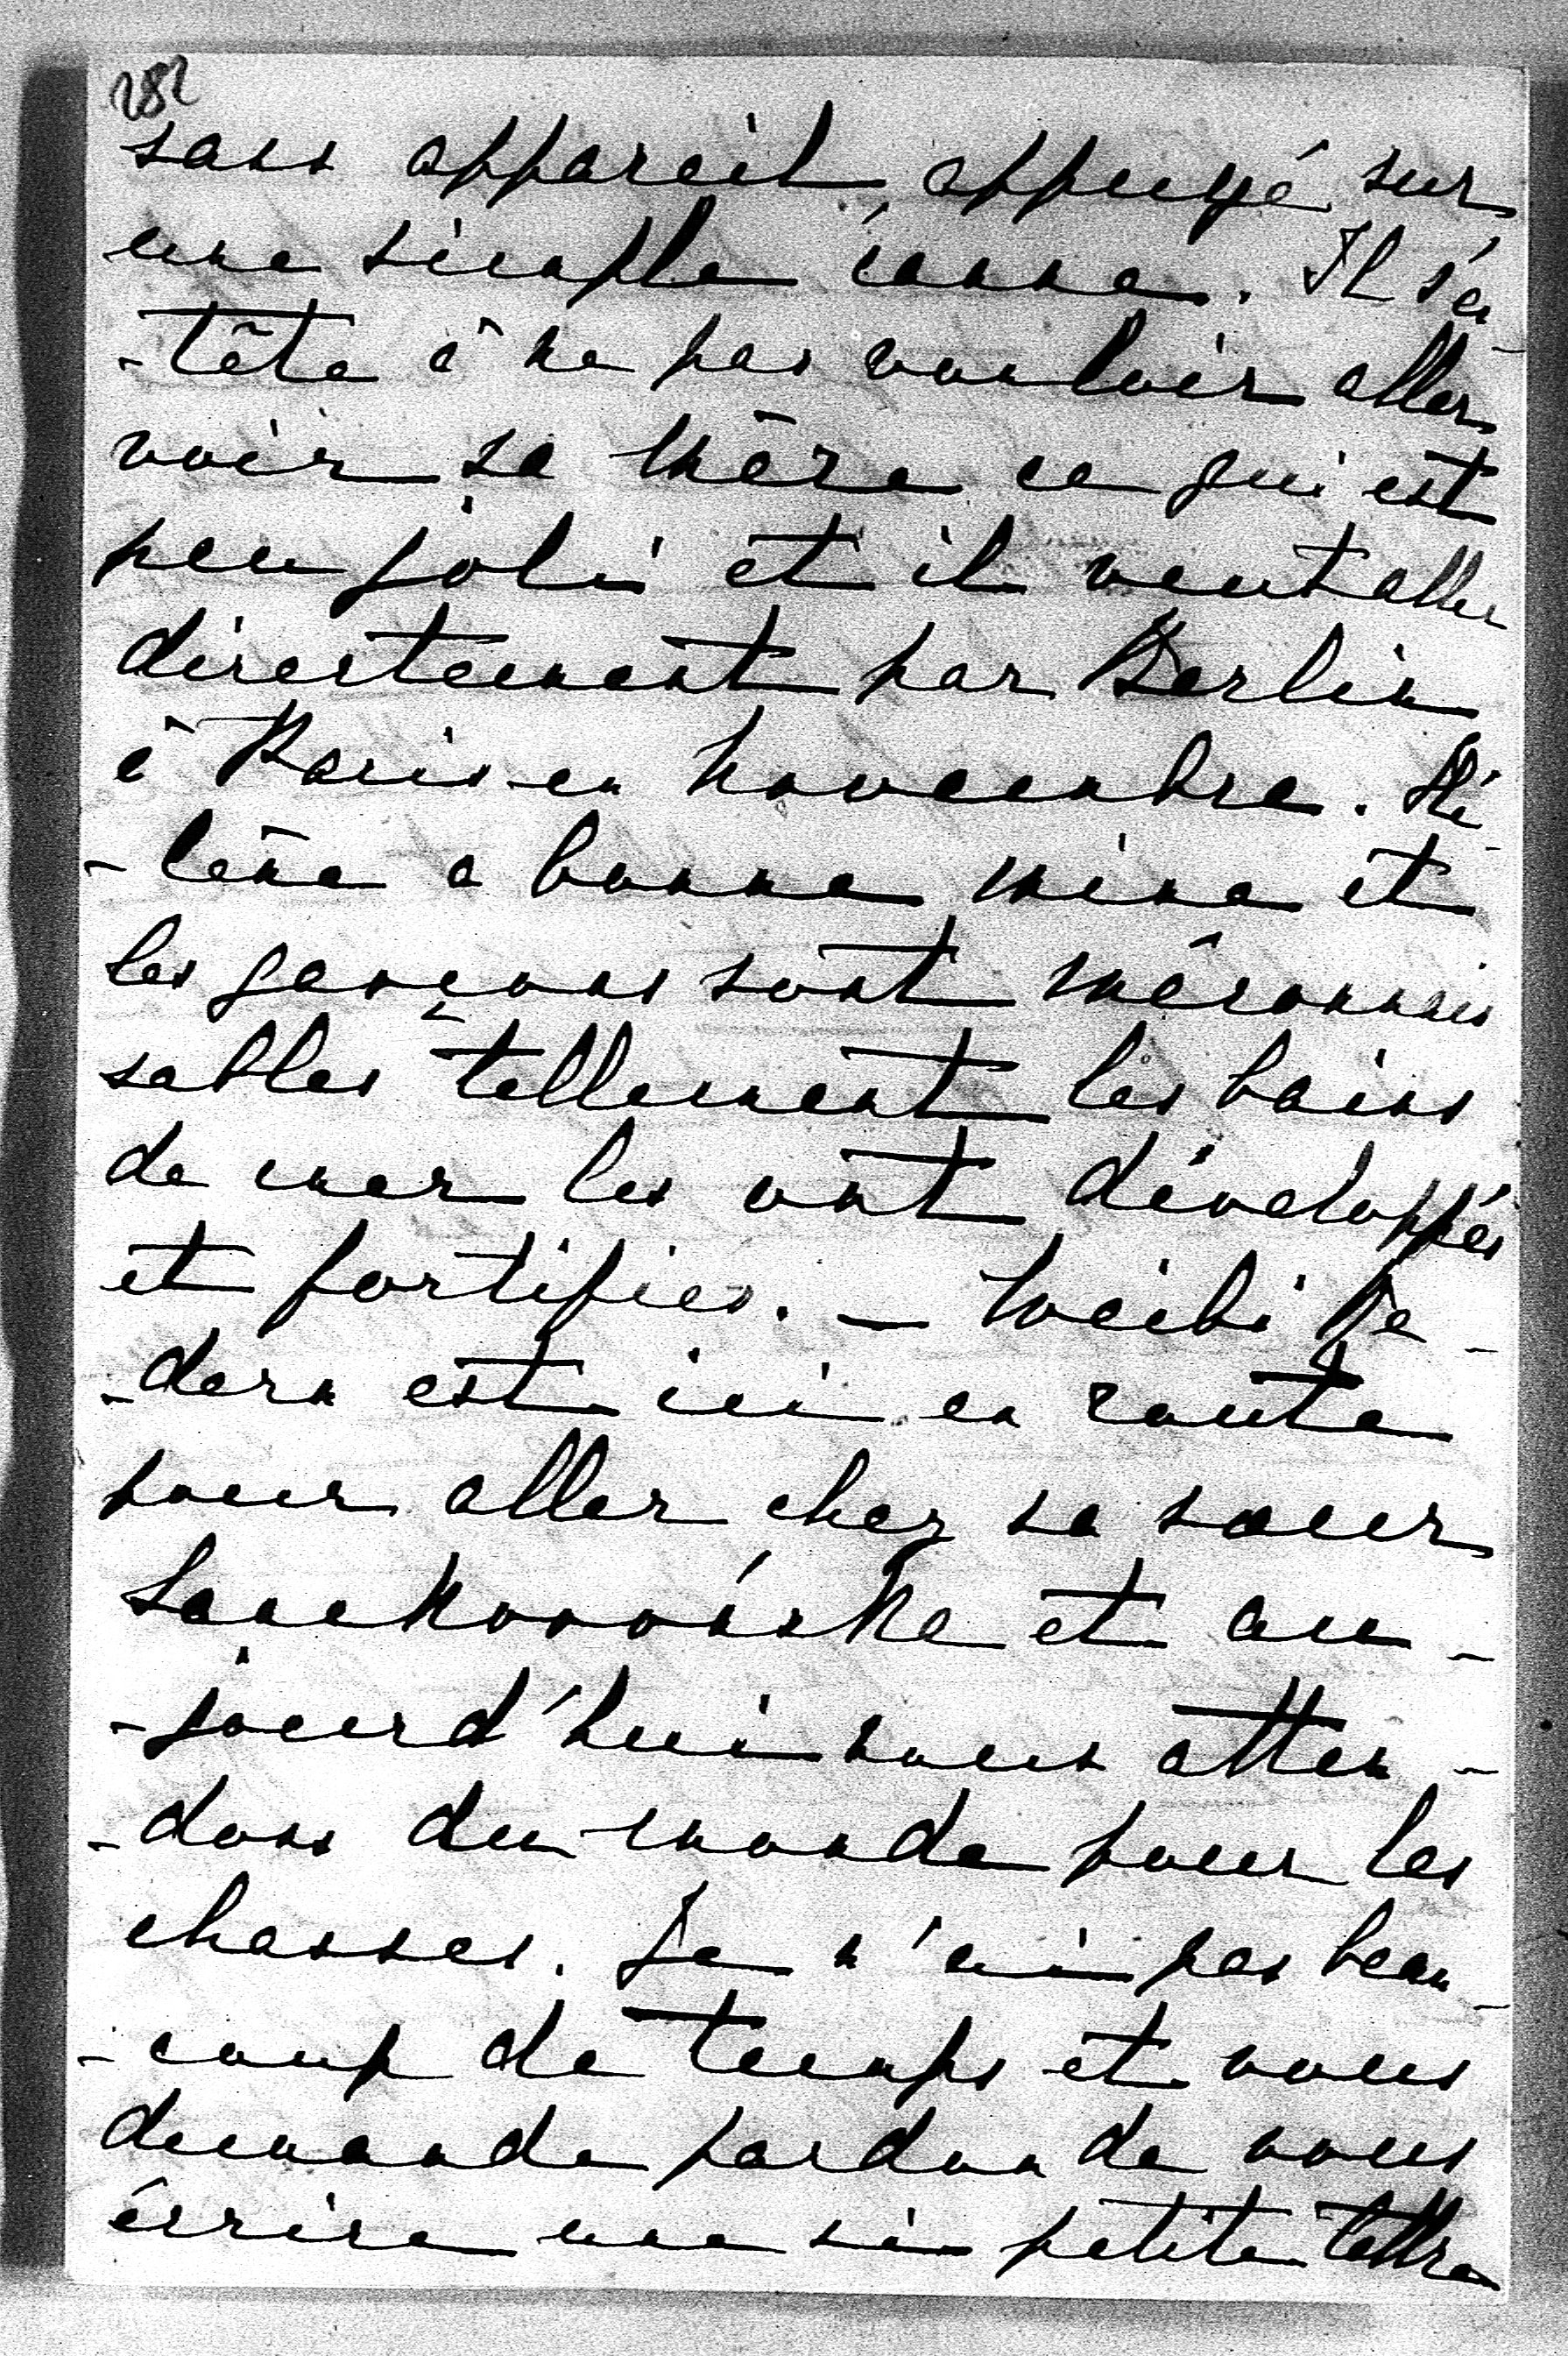 282
sans appareil, appuyé sur
une simple canne. Il s'en
-tête à ne pas vouloir aller
voir sa mère ce qui est
peu joli et il veut aller
directement par Berlin
à Paris en novembre. Hé-
-lène a bonne mine et
les garçons sont méconnais
sables tellement les bains
de mer les ont développés
et fortifiés. —
-dern est ici en route
pour aller chez sa sœur
et au-
-jourd'hui nous atten-
-dons du monde pour les
chasses. Je n'ai pas beau-
-coup de temps et vous
demande pardon de vous
écrire une si petite lettre